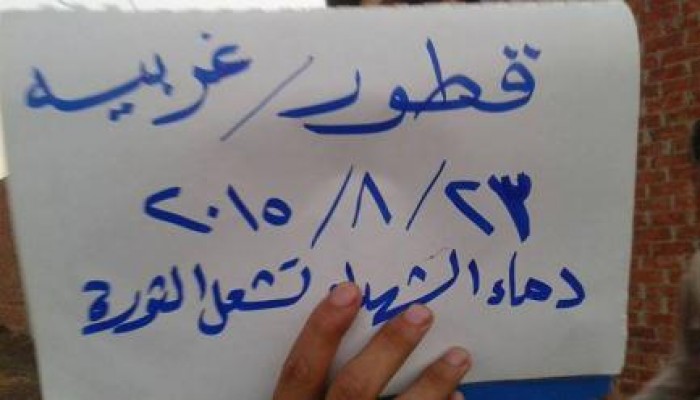 قطور/غربيه
٢٣/٨/٢٠١٥
دماء الشهداء تشعل الثورة